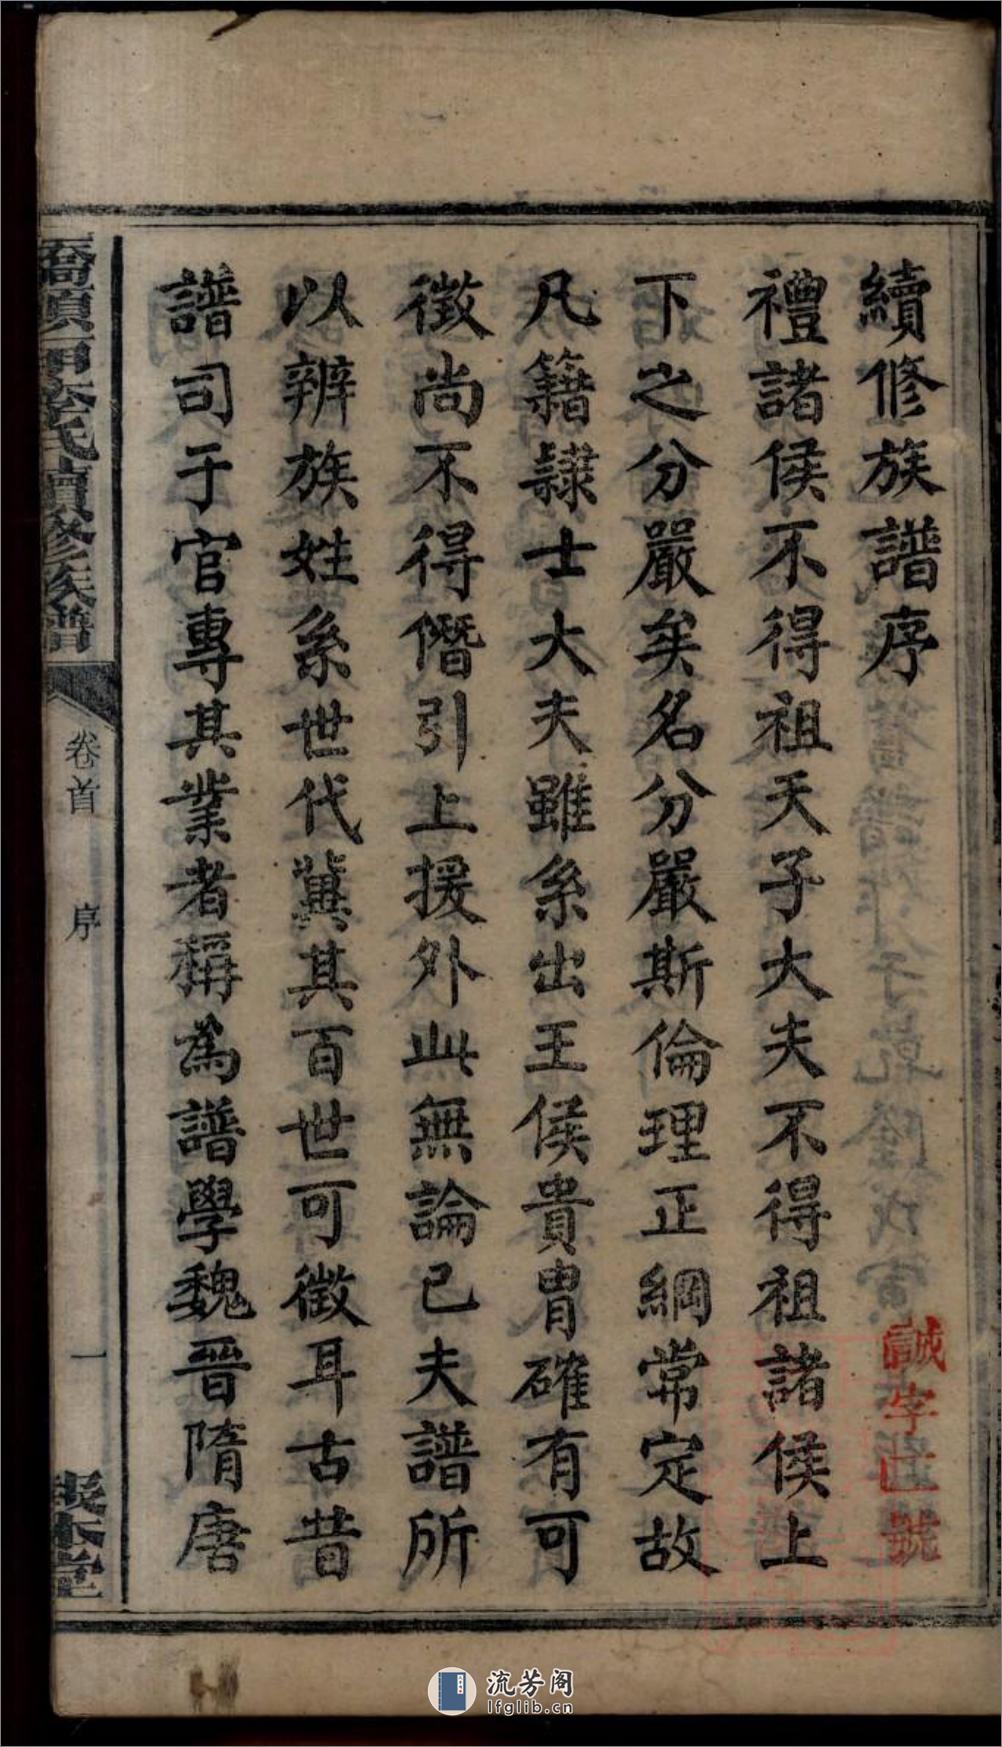 續修族譜序
禮諸侯不得祖天子大夫不得祖諸侯上
下之分嚴矣名分嚴斯倫理正綱常定故
凡籍隸士大夫雖系出王侯貴胄確有可
徵尚不得僭引上援外此無論已夫譜所
以辨族姓系世代冀其百世可徵耳古昔
譜司于官專其業者稱為譜學魏晉隋唐
氏續修族譜
卷首
序
一
本堂
誠字號
流芳阁
lfglib.cn